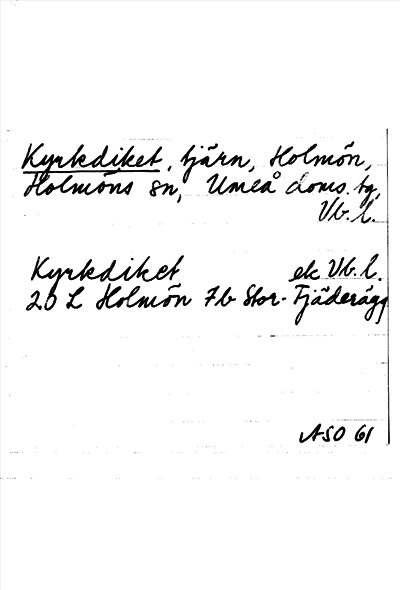 Kyrkdiket, tjärn, Holmön,
Holmöns sn, Umeå doms. tg,
Vb. l.
Kyrkdiket ek Vb. l.
20 L Holmön 7b Stor-Fjäderägg
ASO 61